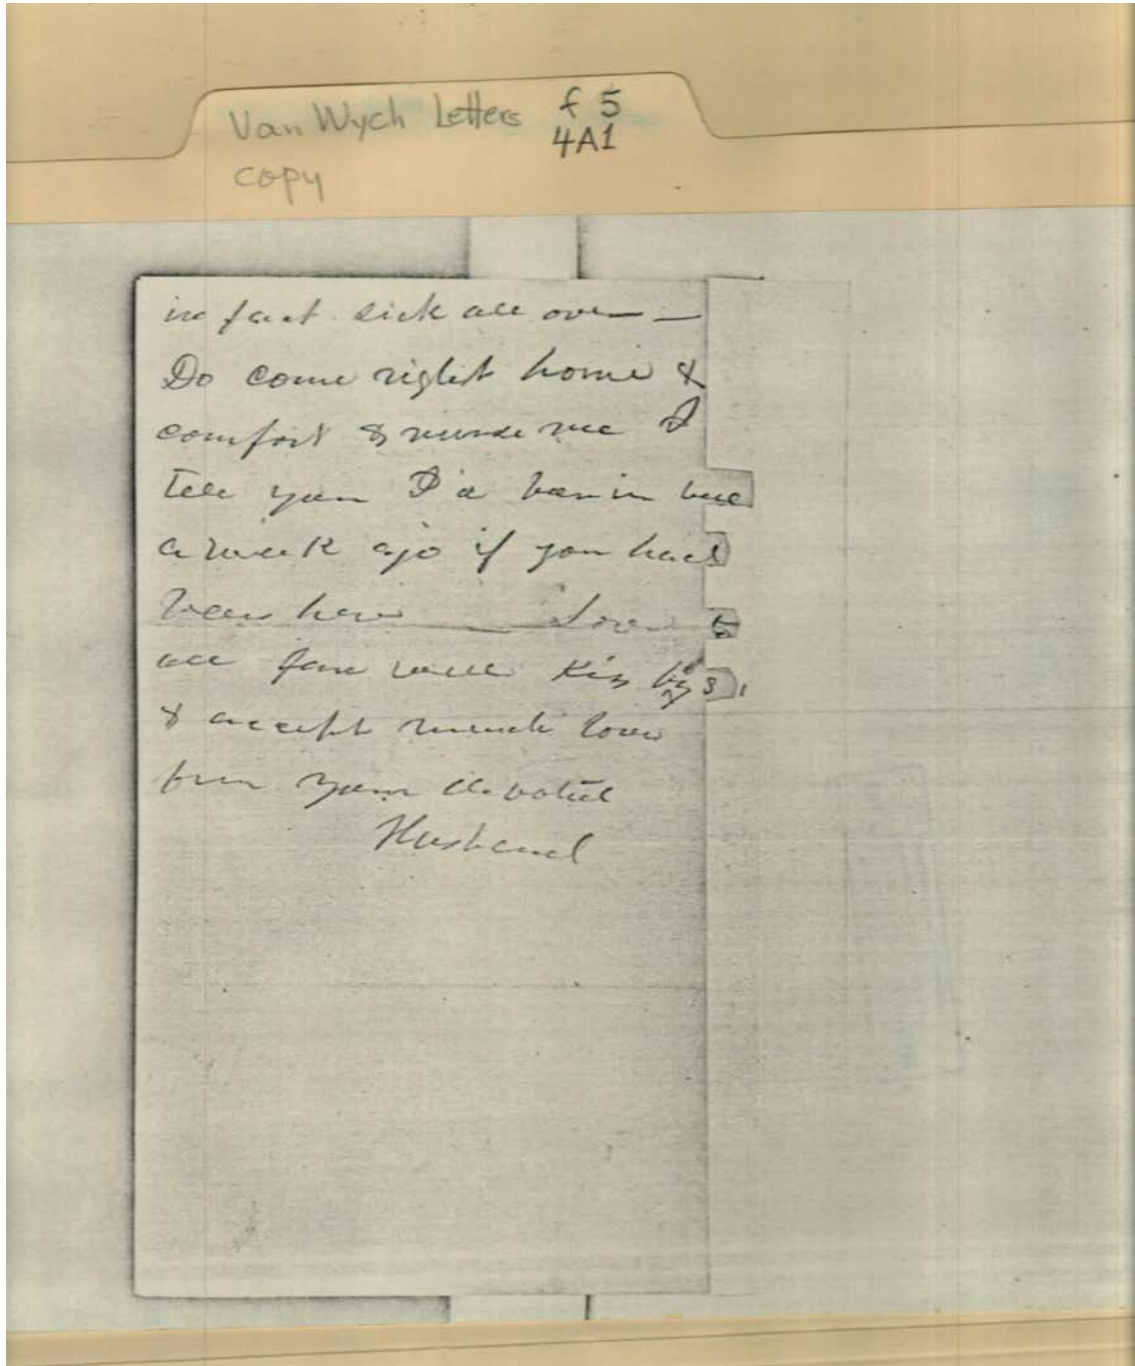 Van Wych Letters f 5
4A1
copy
in fact sick all over —
Do come right home &
comfort & nurse me I
tell you I'd been in bed
a week ago if you had
been here — Love to
all farewell Kiss boys
& accept much love
from your devoted
Husband